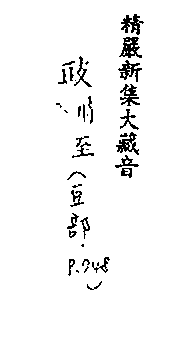 精嚴新集大藏音
至(豆部.
P.948)